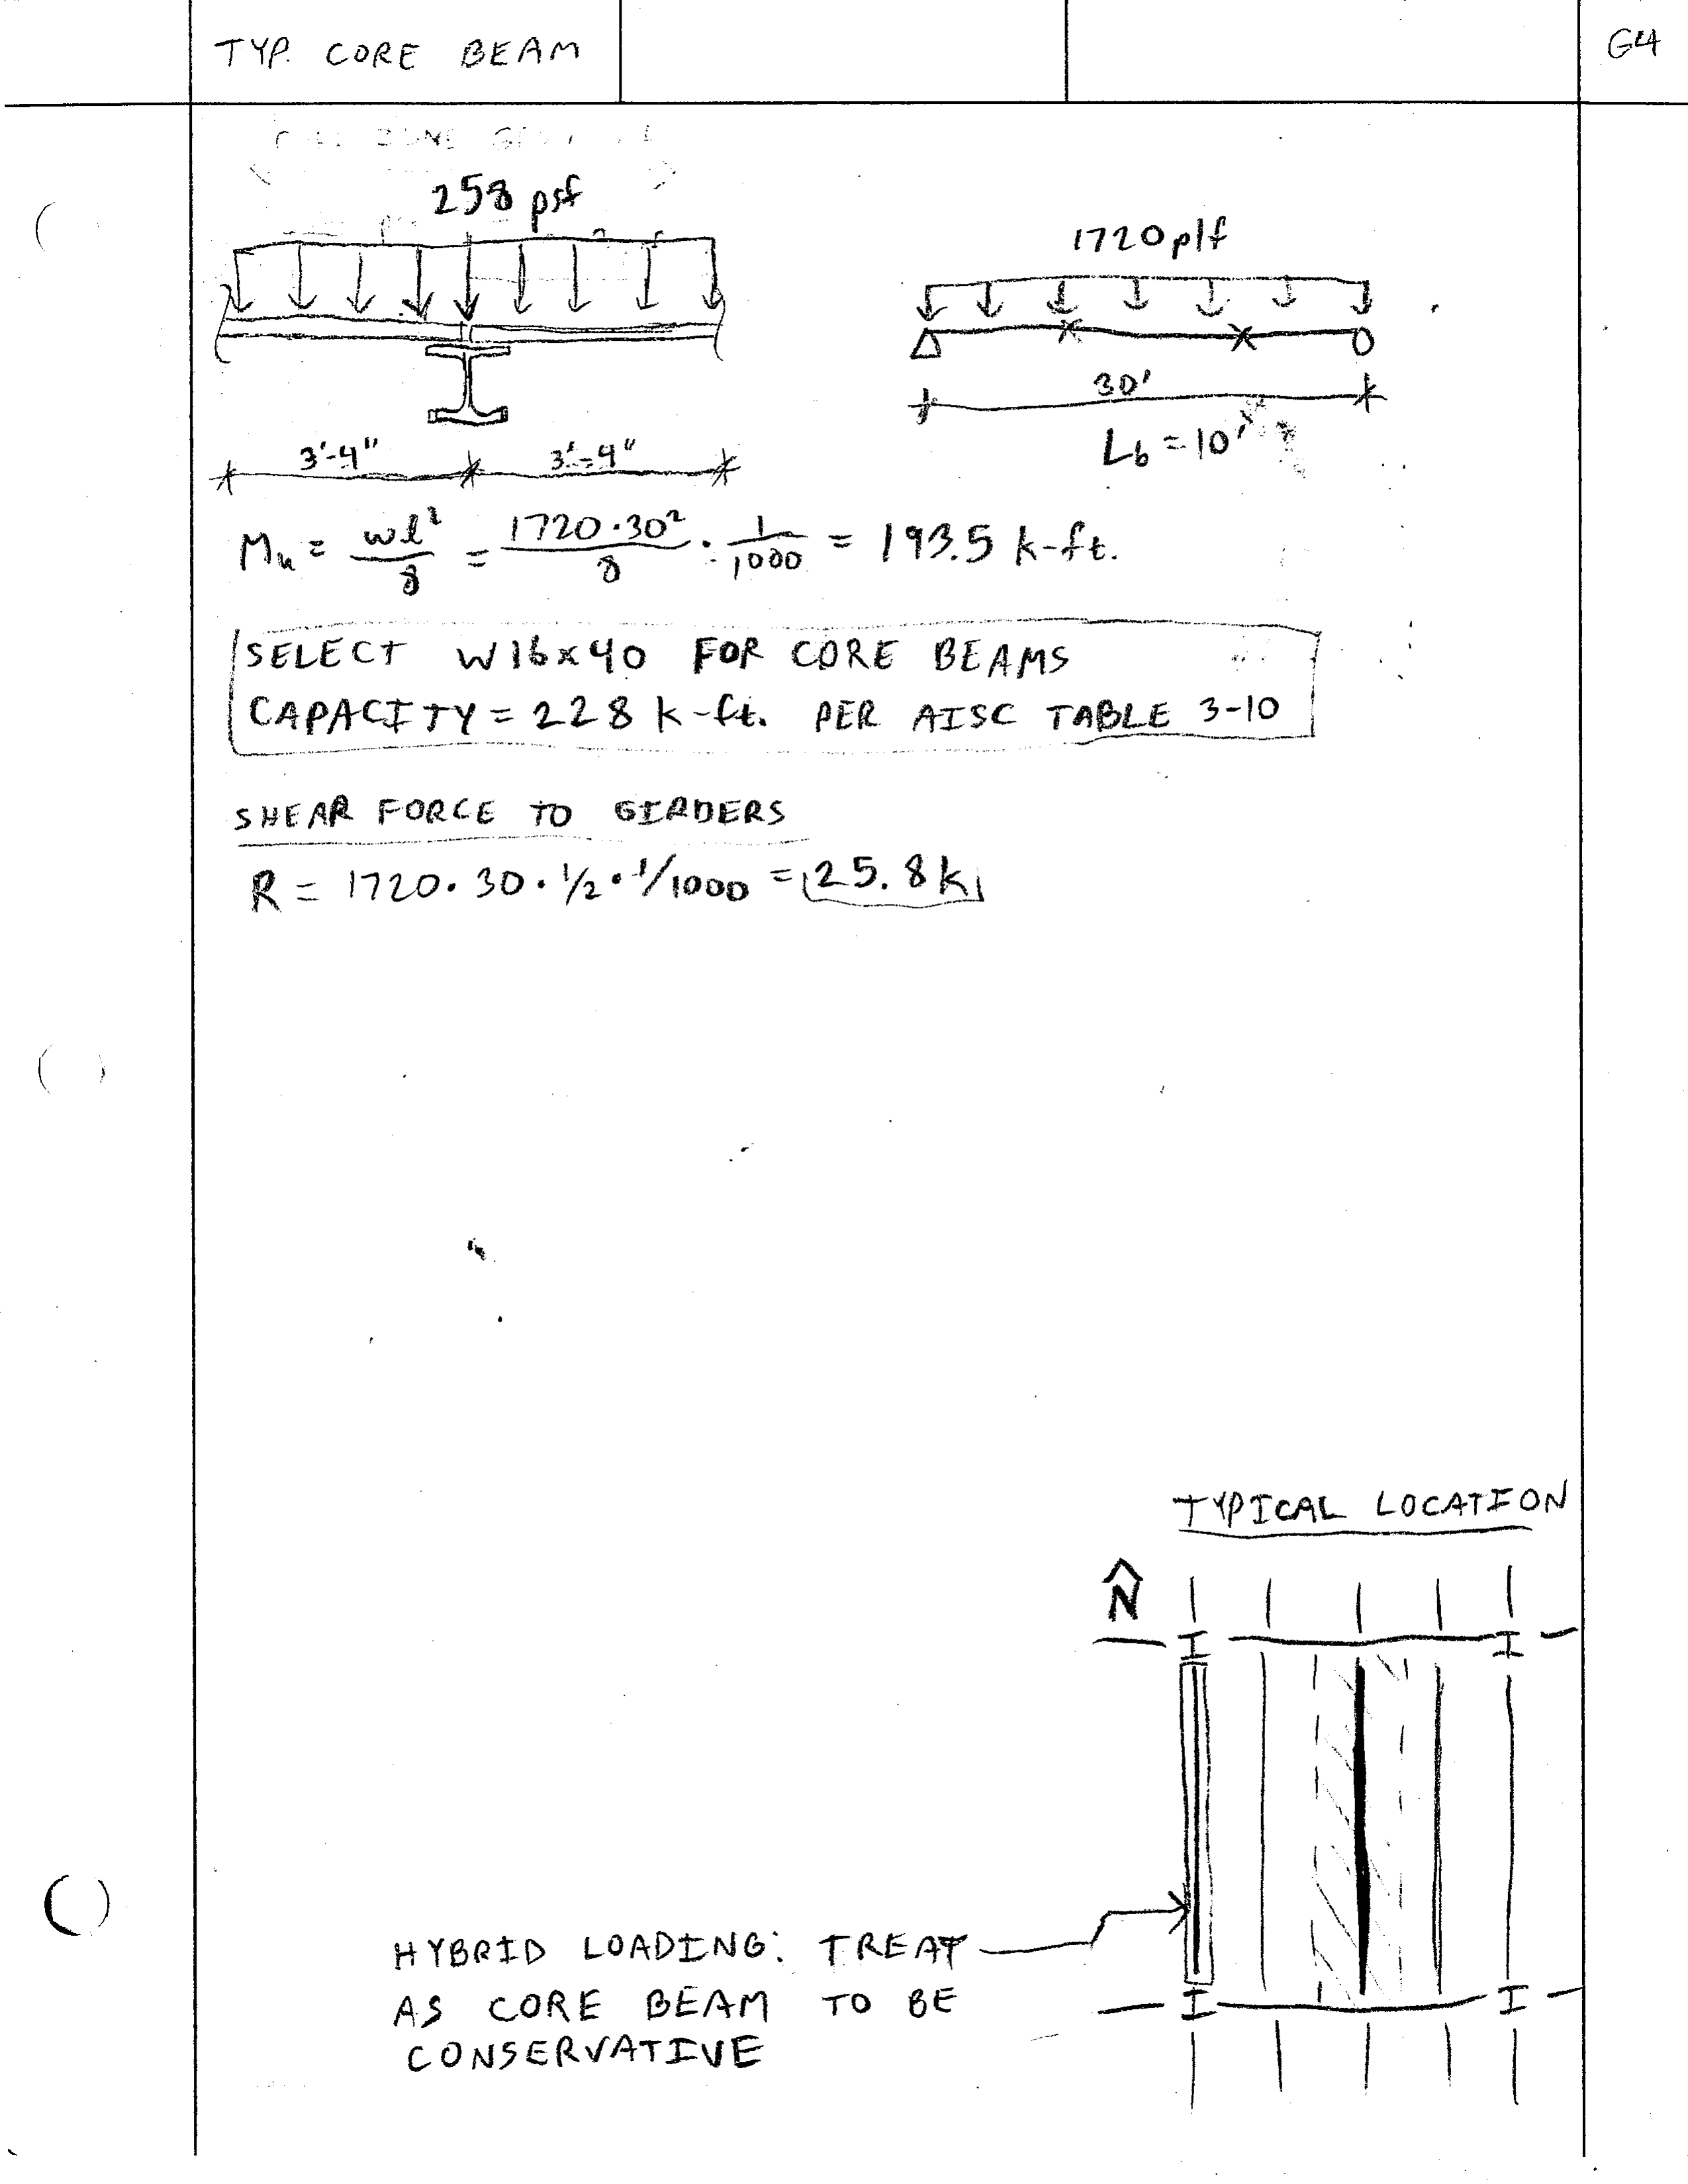 TYP. CORE BEAM
G4
258 psf
1720 plf
3'-4" 3'-4"
30'
Lb = 10'
Mu = wl²/8 = 1720·30²/8 · 1/1000 = 193.5 k-ft.
SELECT W16x40 FOR CORE BEAMS
CAPACITY = 228 k-ft. PER AISC TABLE 3-10
SHEAR FORCE TO GIRDERS
R = 1720 · 30 · 1/2 · 1/1000 = 25.8 k
TYPICAL LOCATION
N
HYBRID LOADING: TREAT
AS CORE BEAM TO BE
CONSERVATIVE